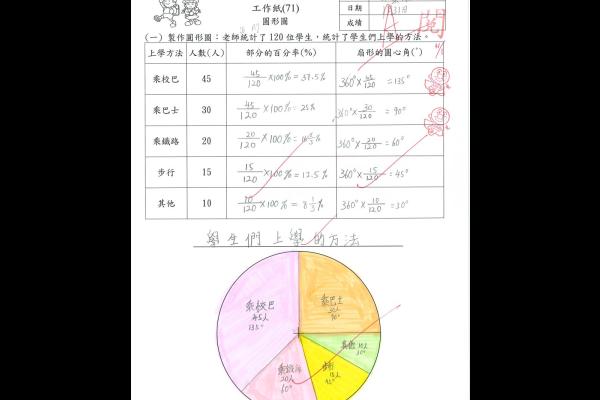 工作紙(71)
圓形圖
日期
31日
成績
A
(一) 製作圓形圖：老師統計了 120 位學生，統計了學生們上學的方法。
上學方法 人數(人) 部分的百分率(%) 扇形的圓心角(°)
乘校巴 45 45/120 ×100% = 37.5% 360°× 45/120 = 135°
乘巴士 30 45/120 ×100% = 25% 360°× 30/120 = 90°
乘鐵路 20 20/120 ×100% = 16 2/3 % 360°× 20/120 = 60°
步行 15 15/120 ×100% = 12.5% 360°× 15/120 = 45°
其他 10 10/120 ×100% = 8 1/3 % 360°× 10/120 = 30°
學生們上學的方法
乘巴士
30人
90°
乘校巴
45人
135°
其他 10人
30°
步行
15人
45°
乘鐵路
20人
60°